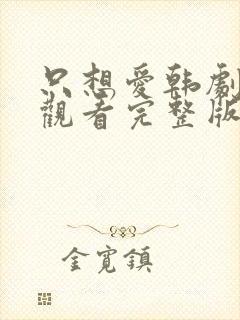 只想愛韩劇
觀看完整版
金寬鎮